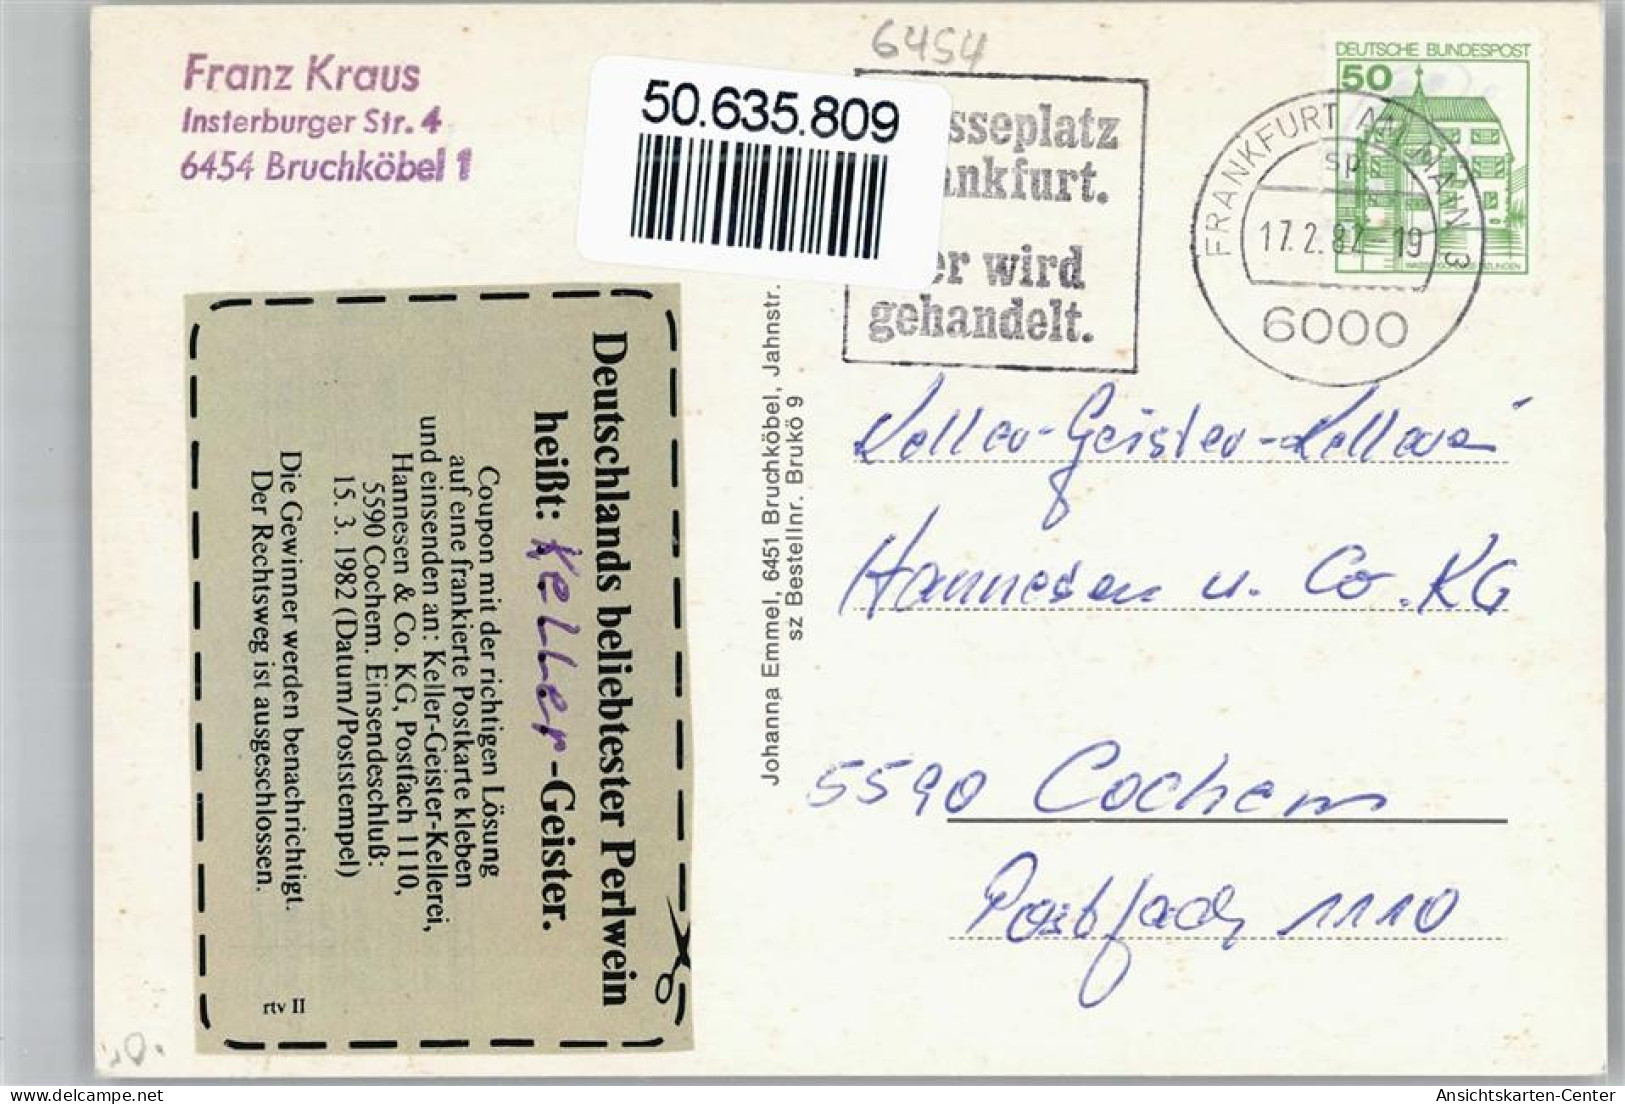 6454
Franz Kraus
Insterburger Str. 4
6454 Bruchköbel 1
50.635.809
sseplatz
nkfurt.
er wird
gehandelt.
DEUTSCHE BUNDESPOST
50
FRANKFURT AM MAIN 3
sp
17.2.82-19
6000
Deutschlands beliebtester Perlwein
heißt: Keller-Geister.
Coupon mit der richtigen Lösung
auf eine frankierte Postkarte kleben
und einsenden an: Keller-Geister-Kellerei,
Hannesen & Co. KG, Postfach 1110,
5590 Cochem. Einsendeschluß:
15. 3. 1982 (Datum/Poststempel)
Die Gewinner werden benachrichtigt.
Der Rechtsweg ist ausgeschlossen.
rtv II
Johanna Emmel, 6451 Bruchköbel, Jahnstr.
sz Bestellnr. Brukö 9
Keller-Geister-Kellerei
Hannesen u. Co. KG
5590 Cochem
Postfach 1110
Ansichtskarten-Center